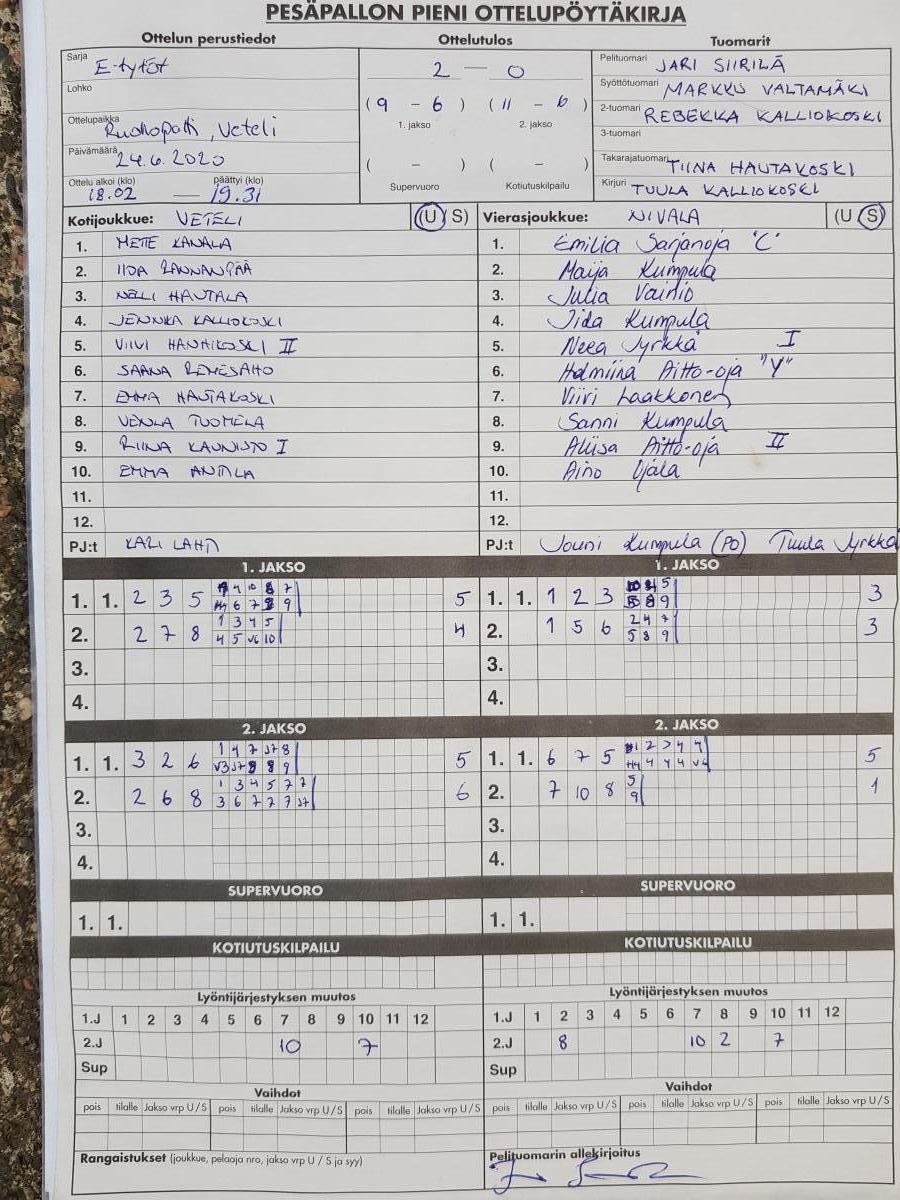 PESÄPALLON PIENI OTTELUPÖYTÄKIRJA
Ottelun perustiedot Ottelutulos Tuomarit
Sarja E-tytöt
Lohko
Ottelupaikka , Veteli
Päivämäärä 24.6.2020
Ottelu alkoi (klo) päättyi (klo)
18.02 — 19.31
2 — 0
(9 - 6) (11 - 6)
1. jakso 2. jakso
( - ) ( - )
Supervuoro Kotiutuskilpailu
Pelituomari JARI SIIRILÄ
Syöttötuomari MARKKU VALTAMÄKI
2-tuomari REBEKKA KALLIOKOSKI
3-tuomari
Takarajatuomari TIINA HAUTAKOSKI
Kirjuri TUULA KALLIOKOSKI
Kotijoukkue: VETELI (U S)
1. METTE KANALA
2. IIDA RANNANPÄÄ
3. NELLI HAUTALA
4. JENNIKA KALLIOKOSKI
5. VIIVI HANHIKOSKI II
6. SAANA
7. EMMA HAUTAKOSKI
8. VENLA TUOMELA
9. RIINA KAUNISTO I
10. EMMA ANTTILA
11.
12.
PJ:t KARI LAHTI
Vierasjoukkue: NIVALA (U S)
1. Emilia Sarjanoja "C"
2. Maija Kumpula
3. Julia Vainio
4. Iida Kumpula
5. Neea Jyrkkä I
6. Helmiina Aitto-oja "Y"
7. Viiri Laakkonen
8. Sanni Kumpula
9. Aliisa Aitto-oja II
10. Aino Ojala
11.
12.
PJ:t Jouni Kumpula (PO) Tuula Jyrkkä
1. JAKSO 1. JAKSO
1. 1. 2 3 5 5
2. 2 7 8 1 3 4 5 4
4 5 V6 10
3.
4.
1. 1. 1 2 3 3
2. 1 5 6 2 4 7 3
5 8 9
3.
4.
2. JAKSO 2. JAKSO
1. 1. 3 2 6 1 4 7 J7 8 5
2. 2 6 8 1 3 4 5 7 7 6
3 6 7 7 7 J7
3.
4.
1. 1. 6 7 5 5
2. 7 10 8 5 1
9
3.
4.
SUPERVUORO SUPERVUORO
1. 1. 1. 1.
KOTIUTUSKILPAILU KOTIUTUSKILPAILU
Lyöntijärjestyksen muutos Lyöntijärjestyksen muutos
1.J 1 2 3 4 5 6 7 8 9 10 11 12
2.J 10 7
Sup
1.J 1 2 3 4 5 6 7 8 9 10 11 12
2.J 8 10 2 7
Sup
Vaihdot Vaihdot
pois tilalle Jakso vrp U / S pois tilalle Jakso vrp U / S pois tilalle Jakso vrp U / S
pois tilalle Jakso vrp U / S pois tilalle Jakso vrp U / S pois tilalle Jakso vrp U / S
Rangaistukset (joukkue, pelaaja nro, jakso vrp U / S ja syy)
Pelituomarin allekirjoitus